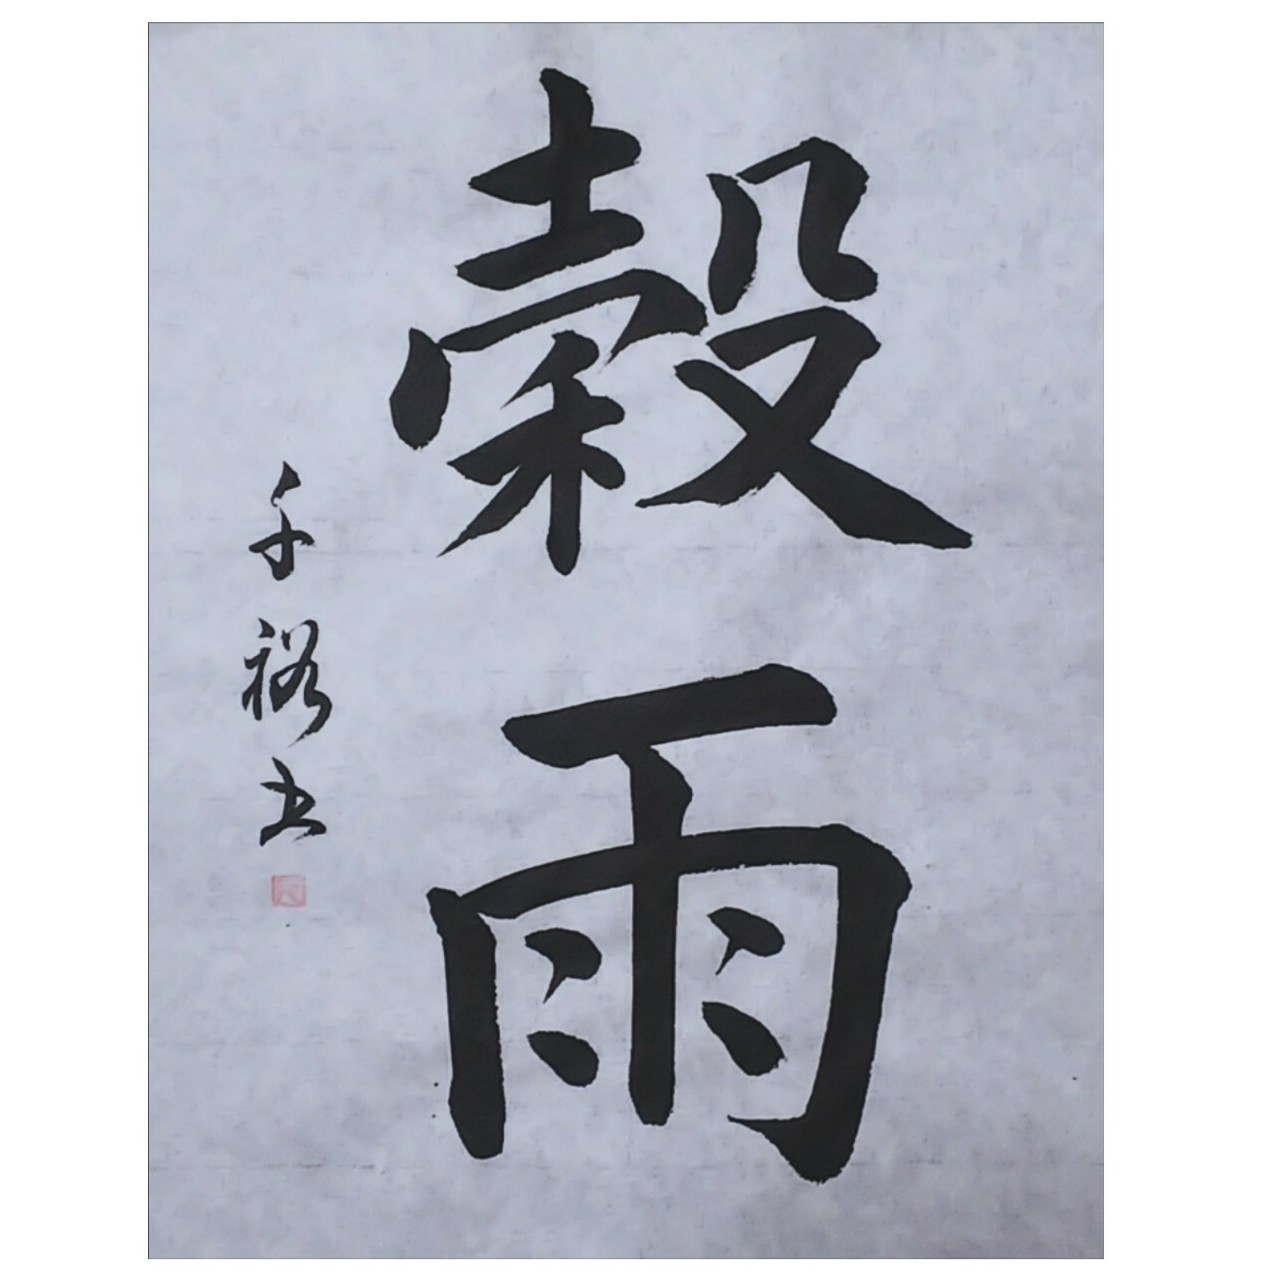 穀雨
千裕书